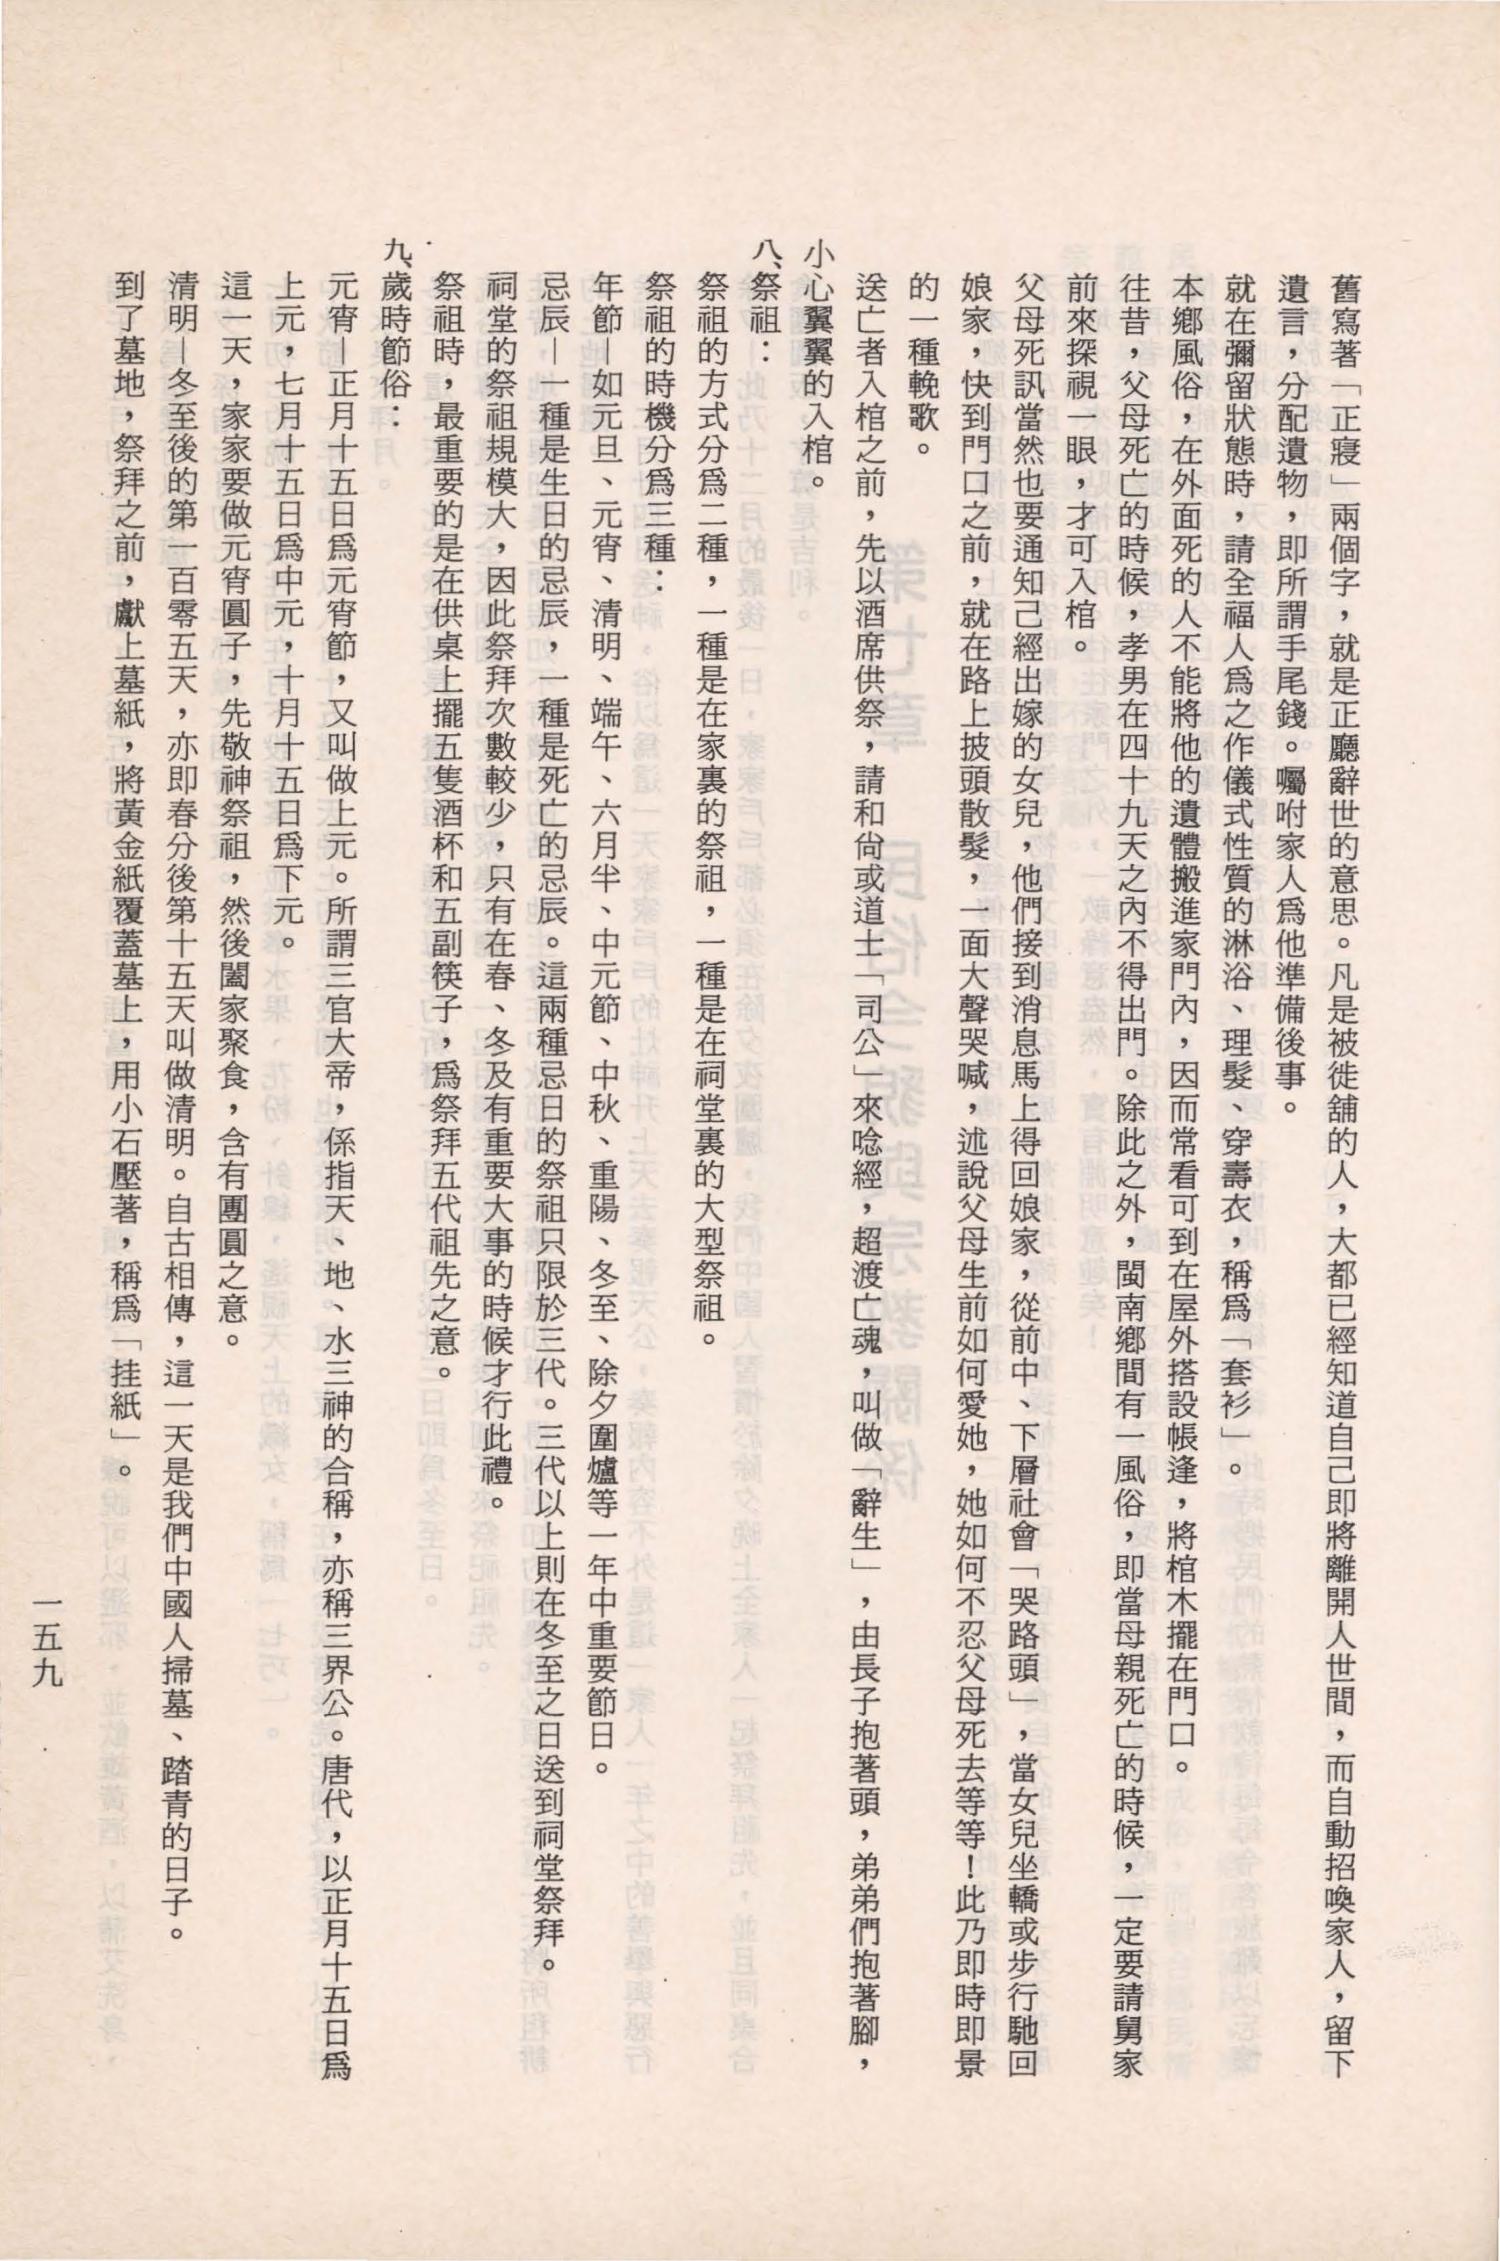 舊寫著「正寢」兩個字，就是正廳辭世的意思。凡是被徙舖的人，大都已經知道自己即將離開人世間，而自動招喚家人，留下
遺言，分配遺物，即所謂手尾錢。囑咐家人爲他準備後事。
就在彌留狀態時，請全福人爲之作儀式性質的淋浴、理髮、穿壽衣，稱爲「套衫」。
本鄉風俗，在外面死的人不能將他的遺體搬進家門內，因而常看可到在屋外搭設帳逢，將棺木擺在門口。
往昔，父母死亡的時候，孝男在四十九天之內不得出門。除此之外，閩南鄉間有一風俗，即當母親死亡的時候，一定要請舅家
前來探視一眼，才可入棺。
父母死訊當然也要通知己經出嫁的女兒，他們接到消息馬上得回娘家，從前中、下層社會「哭路頭」，當女兒坐轎或步行馳回
娘家，快到門口之前，就在路上披頭散髮，一面大聲哭喊，述說父母生前如何愛她，她如何不忍父母死去等等！此乃即時即景
的一種輓歌。
送亡者入棺之前，先以酒席供祭，請和尙或道士「司公」來唸經，超渡亡魂，叫做「辭生」，由長子抱著頭，弟弟們抱著腳，
小心翼翼的入棺。
八、祭祖：
祭祖的方式分爲二種，一種是在家裏的祭祖，一種是在祠堂裏的大型祭祖。
祭祖的時機分爲三種：
年節—如元旦、元宵、清明、端午、六月半、中元節、中秋、重陽、冬至、除夕圍爐等一年中重要節日。
忌辰—一種是生日的忌辰，一種是死亡的忌辰。這兩種忌日的祭祖只限於三代。三代以上則在冬至之日送到祠堂祭拜。
祠堂的祭祖規模大，因此祭拜次數較少，只有在春、冬及有重要大事的時候才行此禮。
祭祖時，最重要的是在供桌上擺五隻酒杯和五副筷子，爲祭拜五代祖先之意。
九、歲時節俗：
元宵—正月十五日爲元宵節，又叫做上元。所謂三官大帝，係指天、地、水三神的合稱，亦稱三界公。唐代，以正月十五日爲
上元，七月十五日爲中元，十月十五日爲下元。
這一天，家家要做元宵圓子，先敬神祭祖，然後闔家聚食，含有團圓之意。
清明—冬至後的第一百零五天，亦即春分後第十五天叫做清明。自古相傳，這一天是我們中國人掃墓、踏青的日子。
到了墓地，祭拜之前，獻上墓紙，將黃金紙覆蓋墓上，用小石壓著，稱爲「挂紙」。
一五九